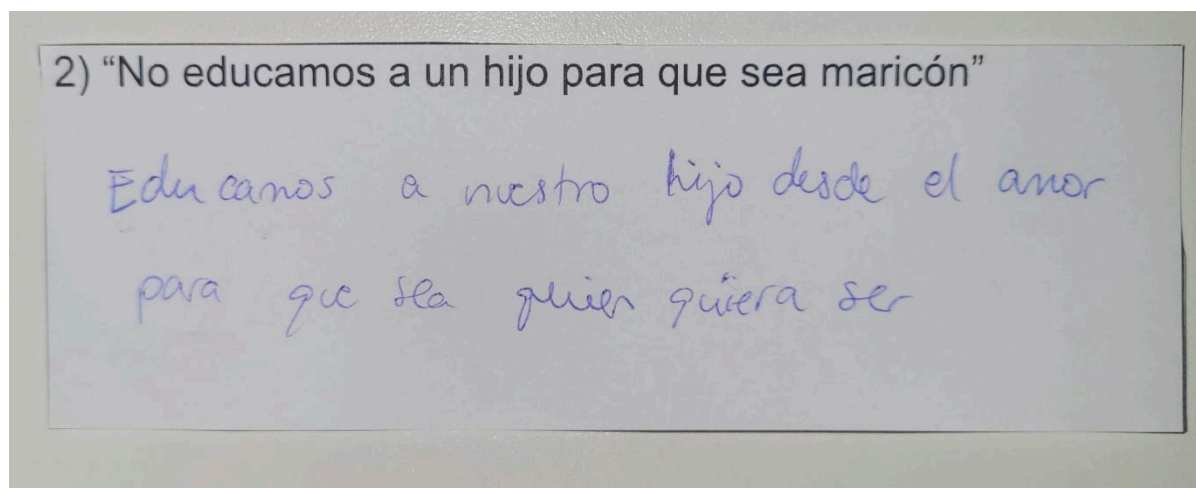 2) “No educamos a un hijo para que sea maricón”
Educamos a nuestro hijo desde el amor
para que sea quien quiera ser